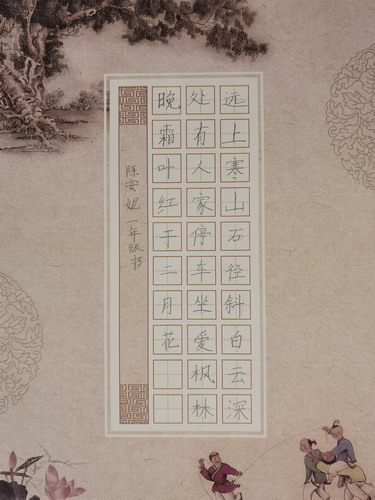 远上寒山石径斜白云深
处有人家停车坐爱枫林
晚霜叶红于二月花
陈安妮 一年级书